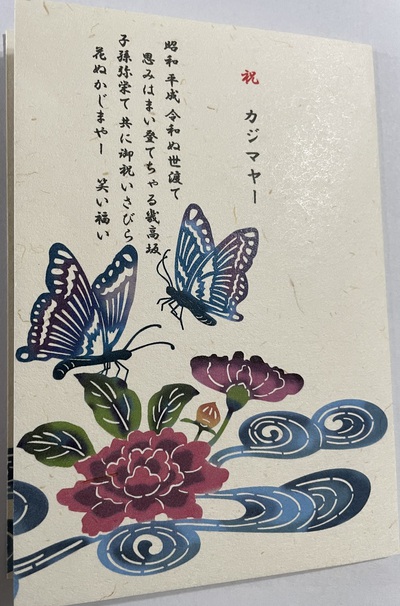 祝 カジマヤー
昭和 平成 令和ぬ世渡て
思みはまい登てちゃる幾高坂
子孫弥栄て 共に御祝いさびら
花ぬかじまやー 笑い福い